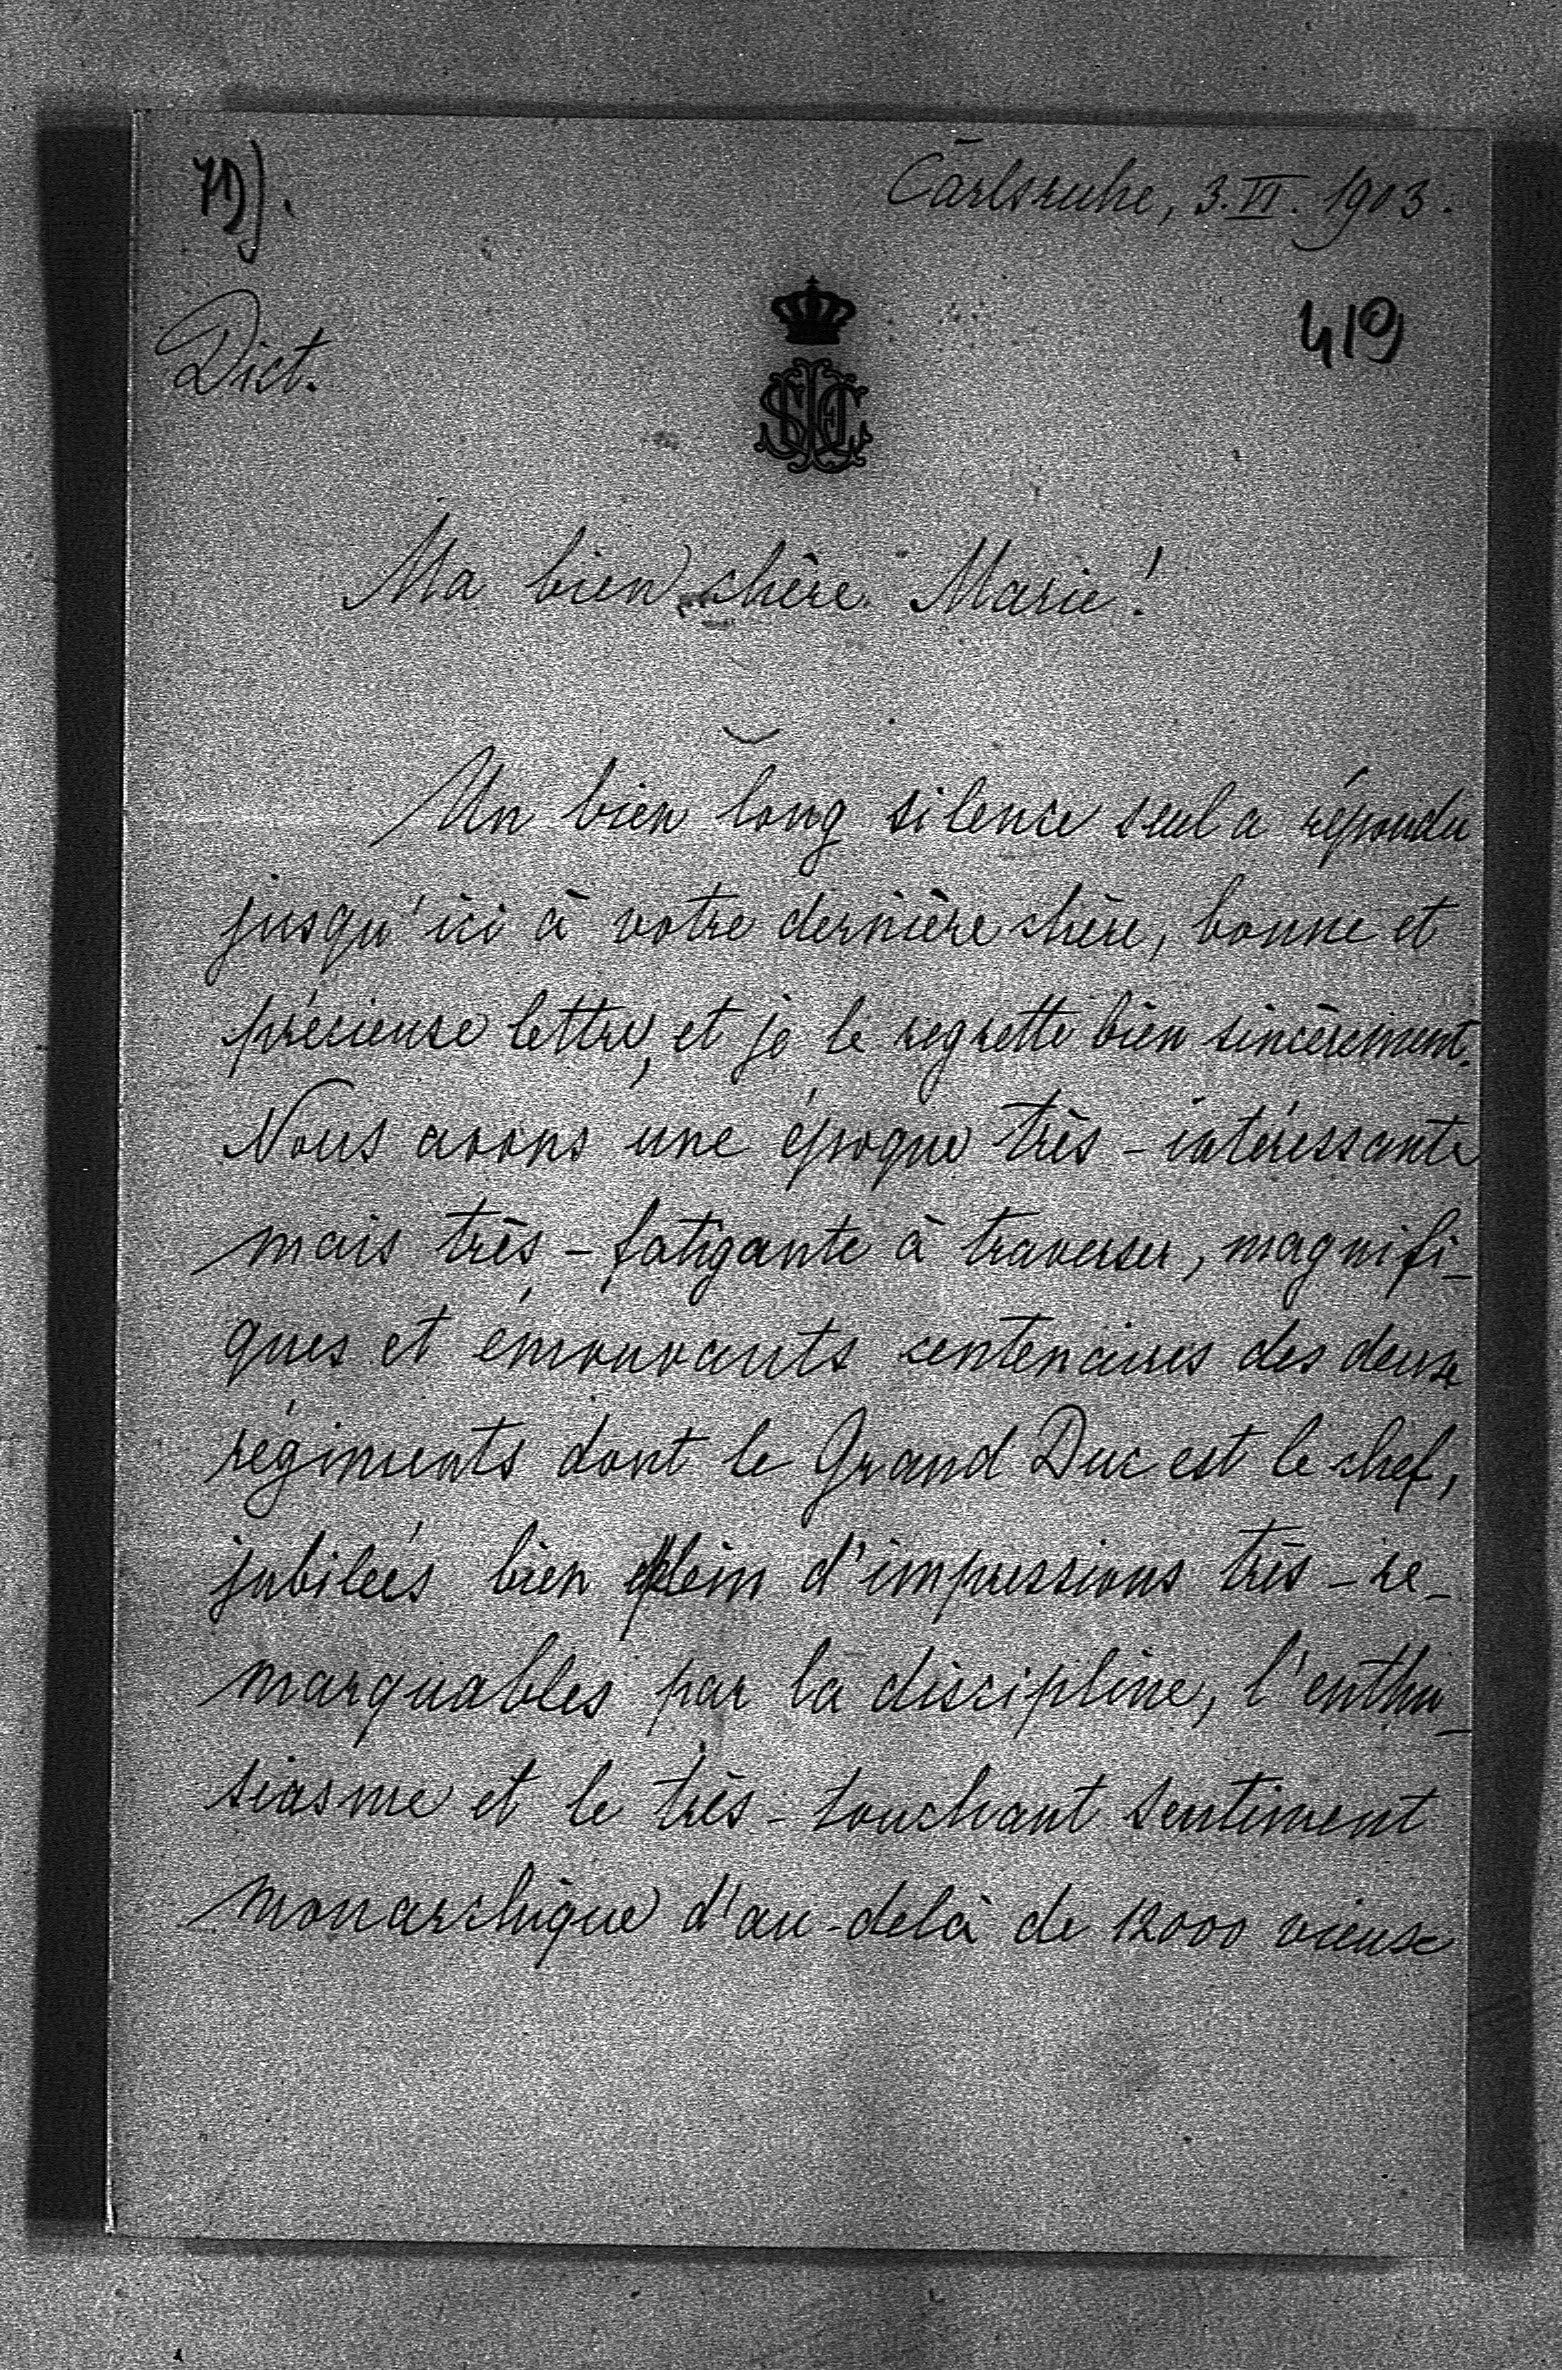 71).
Carlsruhe, 3. VI. 1903.
419
Dict.
Ma bien chère Marie!
Un bien long silence seul a répondu
jusqu'ici à votre dernière chère, bonne et
précieuse lettre, et je le regrette bien sincèrement.
Nous avons une époque très-intéressante
mais très-fatigante à traverser, magnifi-
ques et émouvants centenaires des deux
régiments dont le Grand Duc est le chef,
jubileés bien plein d'impressions très-re-
marquables par la discipline, l'enthu-
siasme et le très-touchant sentiment
monarchique d'au-delà de 12000 vieux